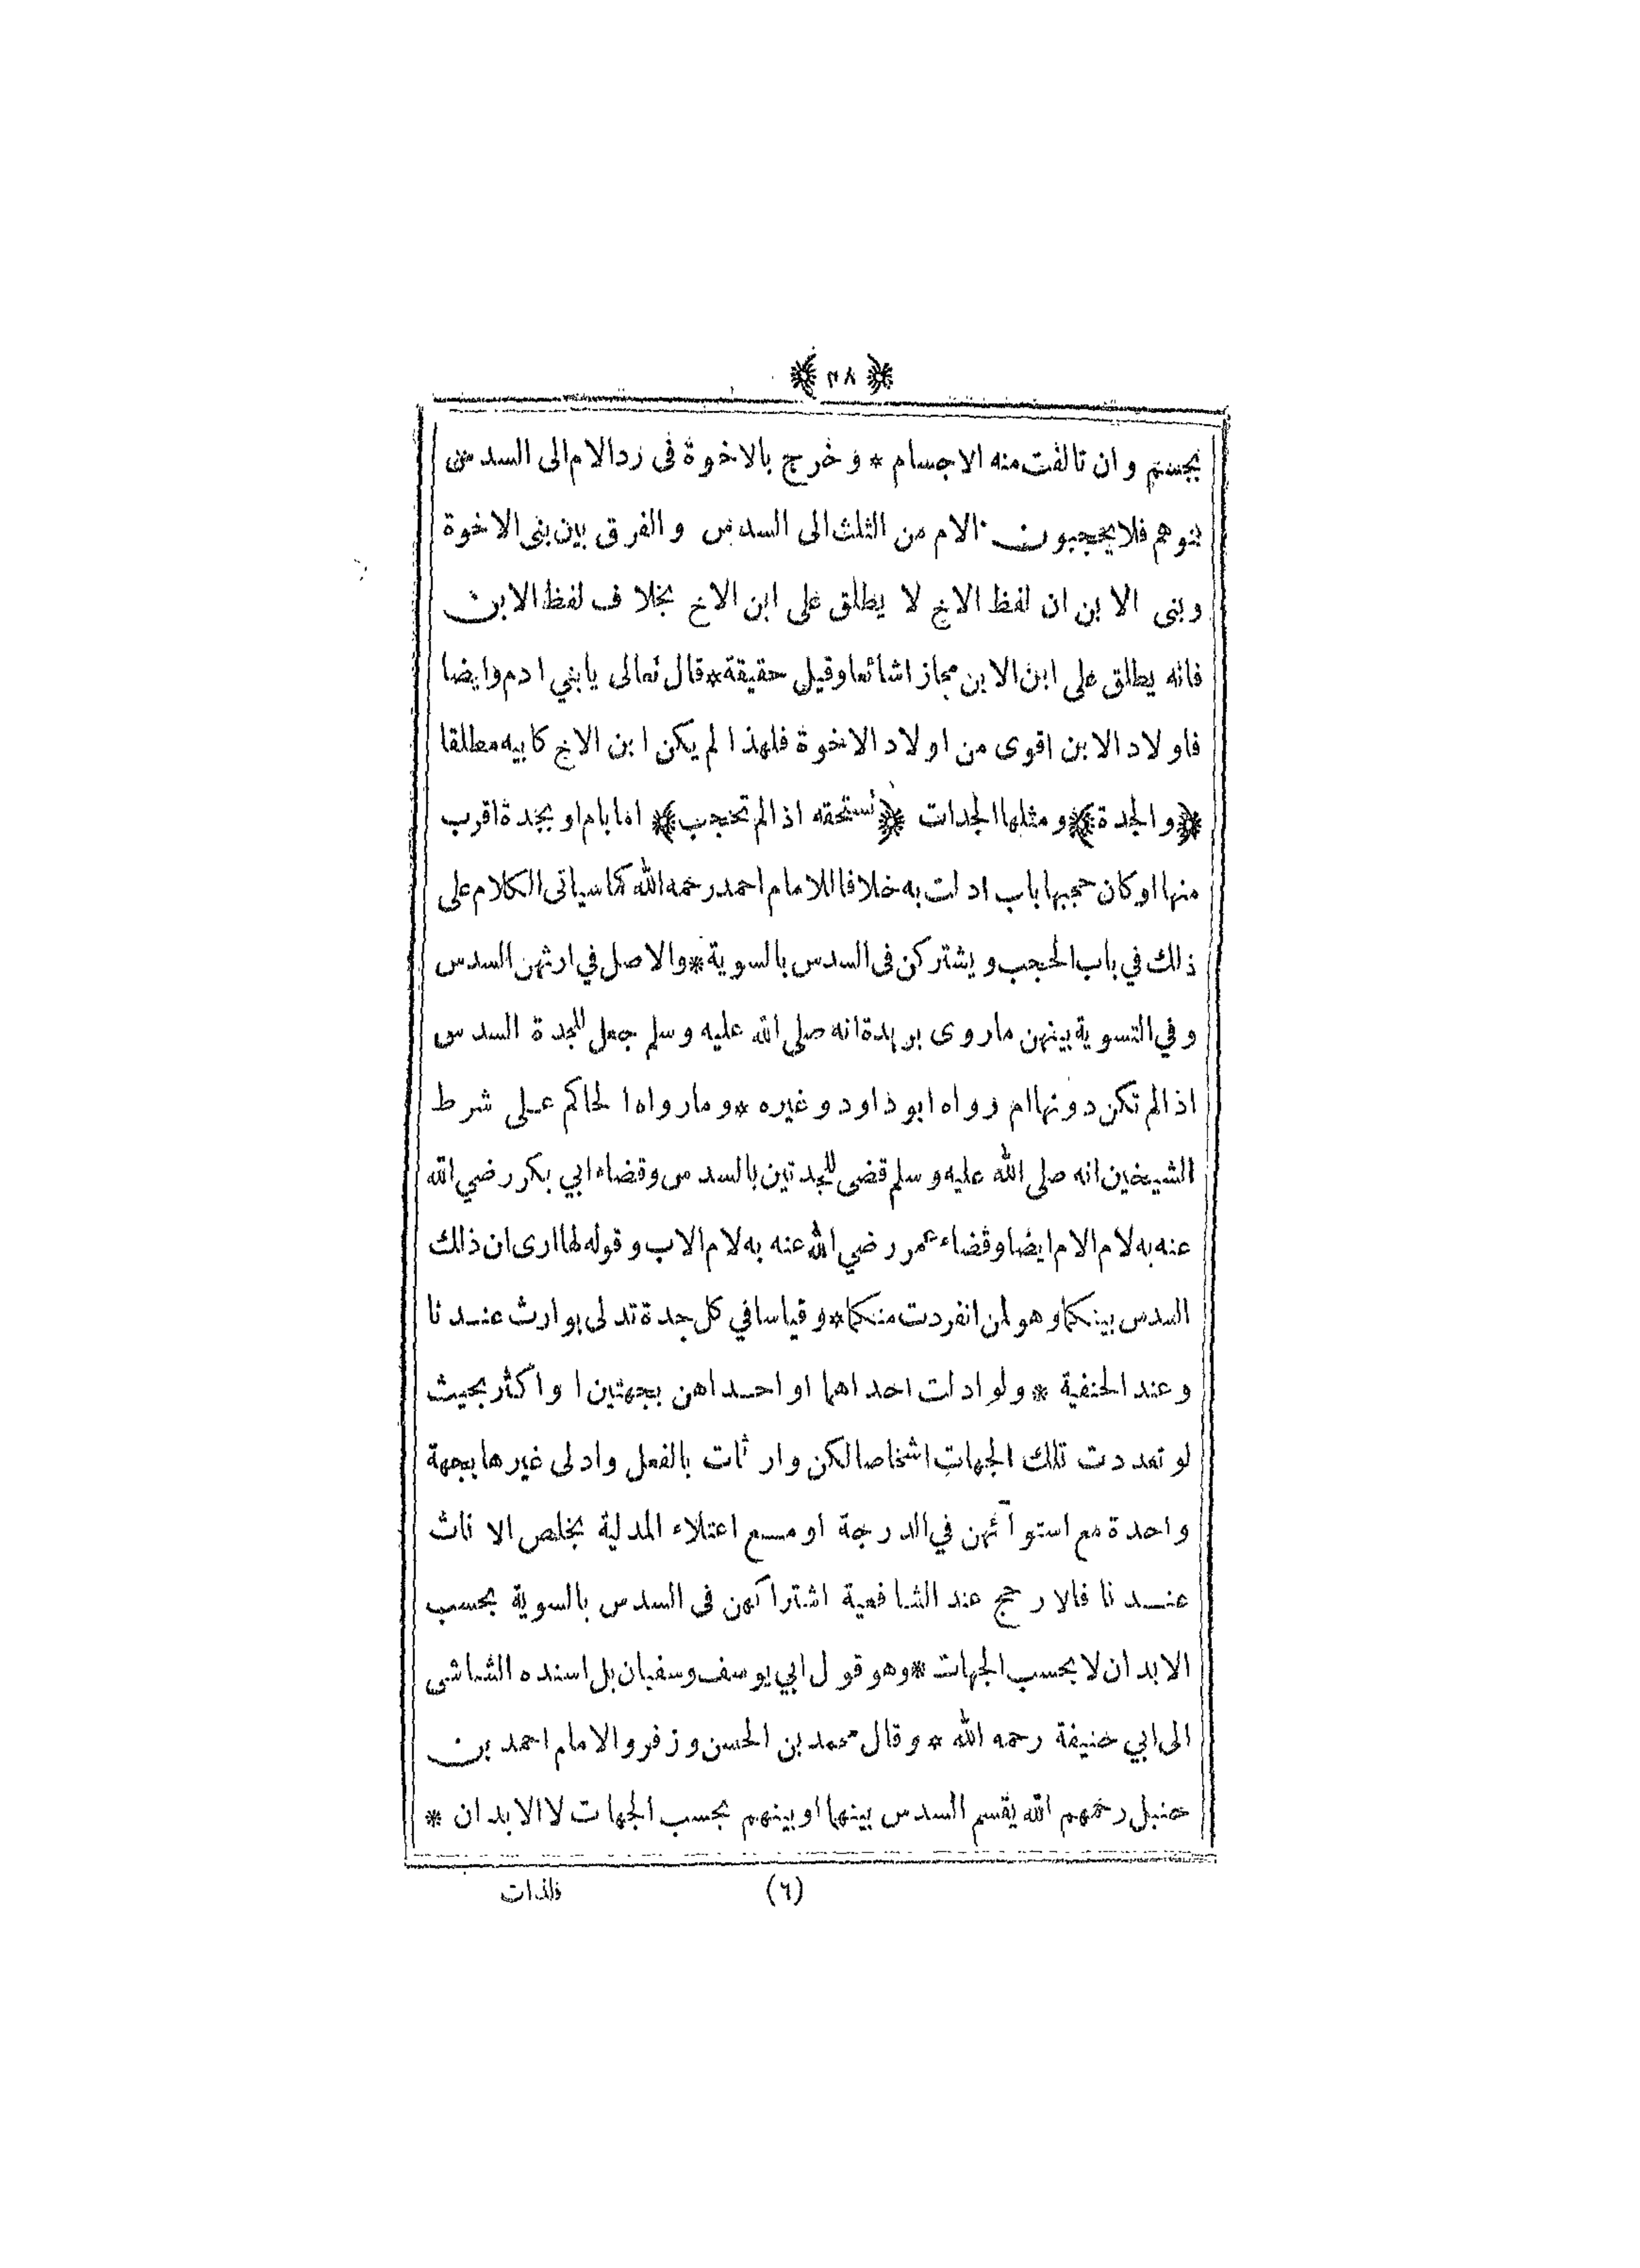 ﴿ ٣٨ ﴾
بجسم وان تالفت منه الاجسام * وخرج بالاخوة في رد الام الى السدس
بنوهم فلا يحجبون الام من الثلث الى السدس والفرق بين بنى الاخوة
وبنى الابن ان لفظ الاخ لا يطلق على ابن الاخ بخلاف لفظ الابن
فانه يطلق على ابن الابن مجازا شائعا وقيل حقيقة * قال تعالى يابني ادم وايضا
فاولاد الابن اقوى من اولاد الاخوة فلهذا لم يكن ابن الاخ كابيه مطلقا
﴿والجدة﴾ ومثلها الجدات ﴿تستحقه اذا لم تحجب﴾ اما بام او بجدة اقرب
منها او كان حجبها باب ادلت به خلافا للامام احمد رحمه الله كما سياتى الكلام على
ذلك في باب الحجب ويشتركن في السدس بالسوية * والاصل في ارثهن السدس
وفي التسوية بينهن ماروى بريدة انه صلى الله عليه وسلم جعل للجدة السدس
اذا لم تكن دونها ام رواه ابو داود وغيره * وما رواه الحاكم على شرط
الشيخين انه صلى الله عليه وسلم قضى للجدتين بالسدس وقضاء ابي بكر رضي الله
عنه به لام الام ايضا وقضاء عمر رضي الله عنه به لام الاب وقوله لها ارى ان ذلك
السدس بينكما وهو لمن انفردت منكما * وقياسا في كل جدة تدلى بوارث عندنا
وعند الحنفية * ولو ادلت احداهما او احداهن بجهتين او اكثر بحيث
لو تعددت تلك الجهات اشخاصا لكن وارثات بالفعل وادلى غيرها بجهة
واحدة مع استوآئهن في الدرجة او مع اعتلاء المدلية بخلص الاناث
عندنا فالارجح عند الشافعية اشتراكهن فى السدس بالسوية بحسب
الابدان لا بحسب الجهات * وهو قول ابي يوسف وسفيان بل اسنده الشاشى
الى ابي حنيفة رحمه الله * وقال محمد بن الحسن وزفر والامام احمد بن
حنبل رحمهم الله يقسم السدس بينهما او بينهم بحسب الجهات لا الابدان *
(٦)
فلذات